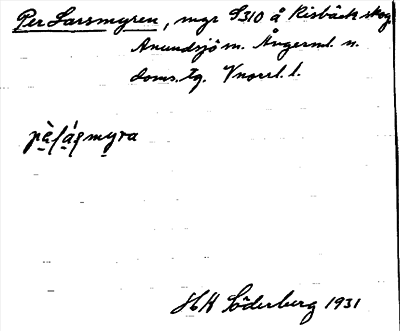 Per Larsmyren, mgr S310 å Risbäck skog
Anundsjö sn. Ångerml. n.
doms. tg. Vnorrl. l.
pèláṣmyra
H H Söderberg 1931